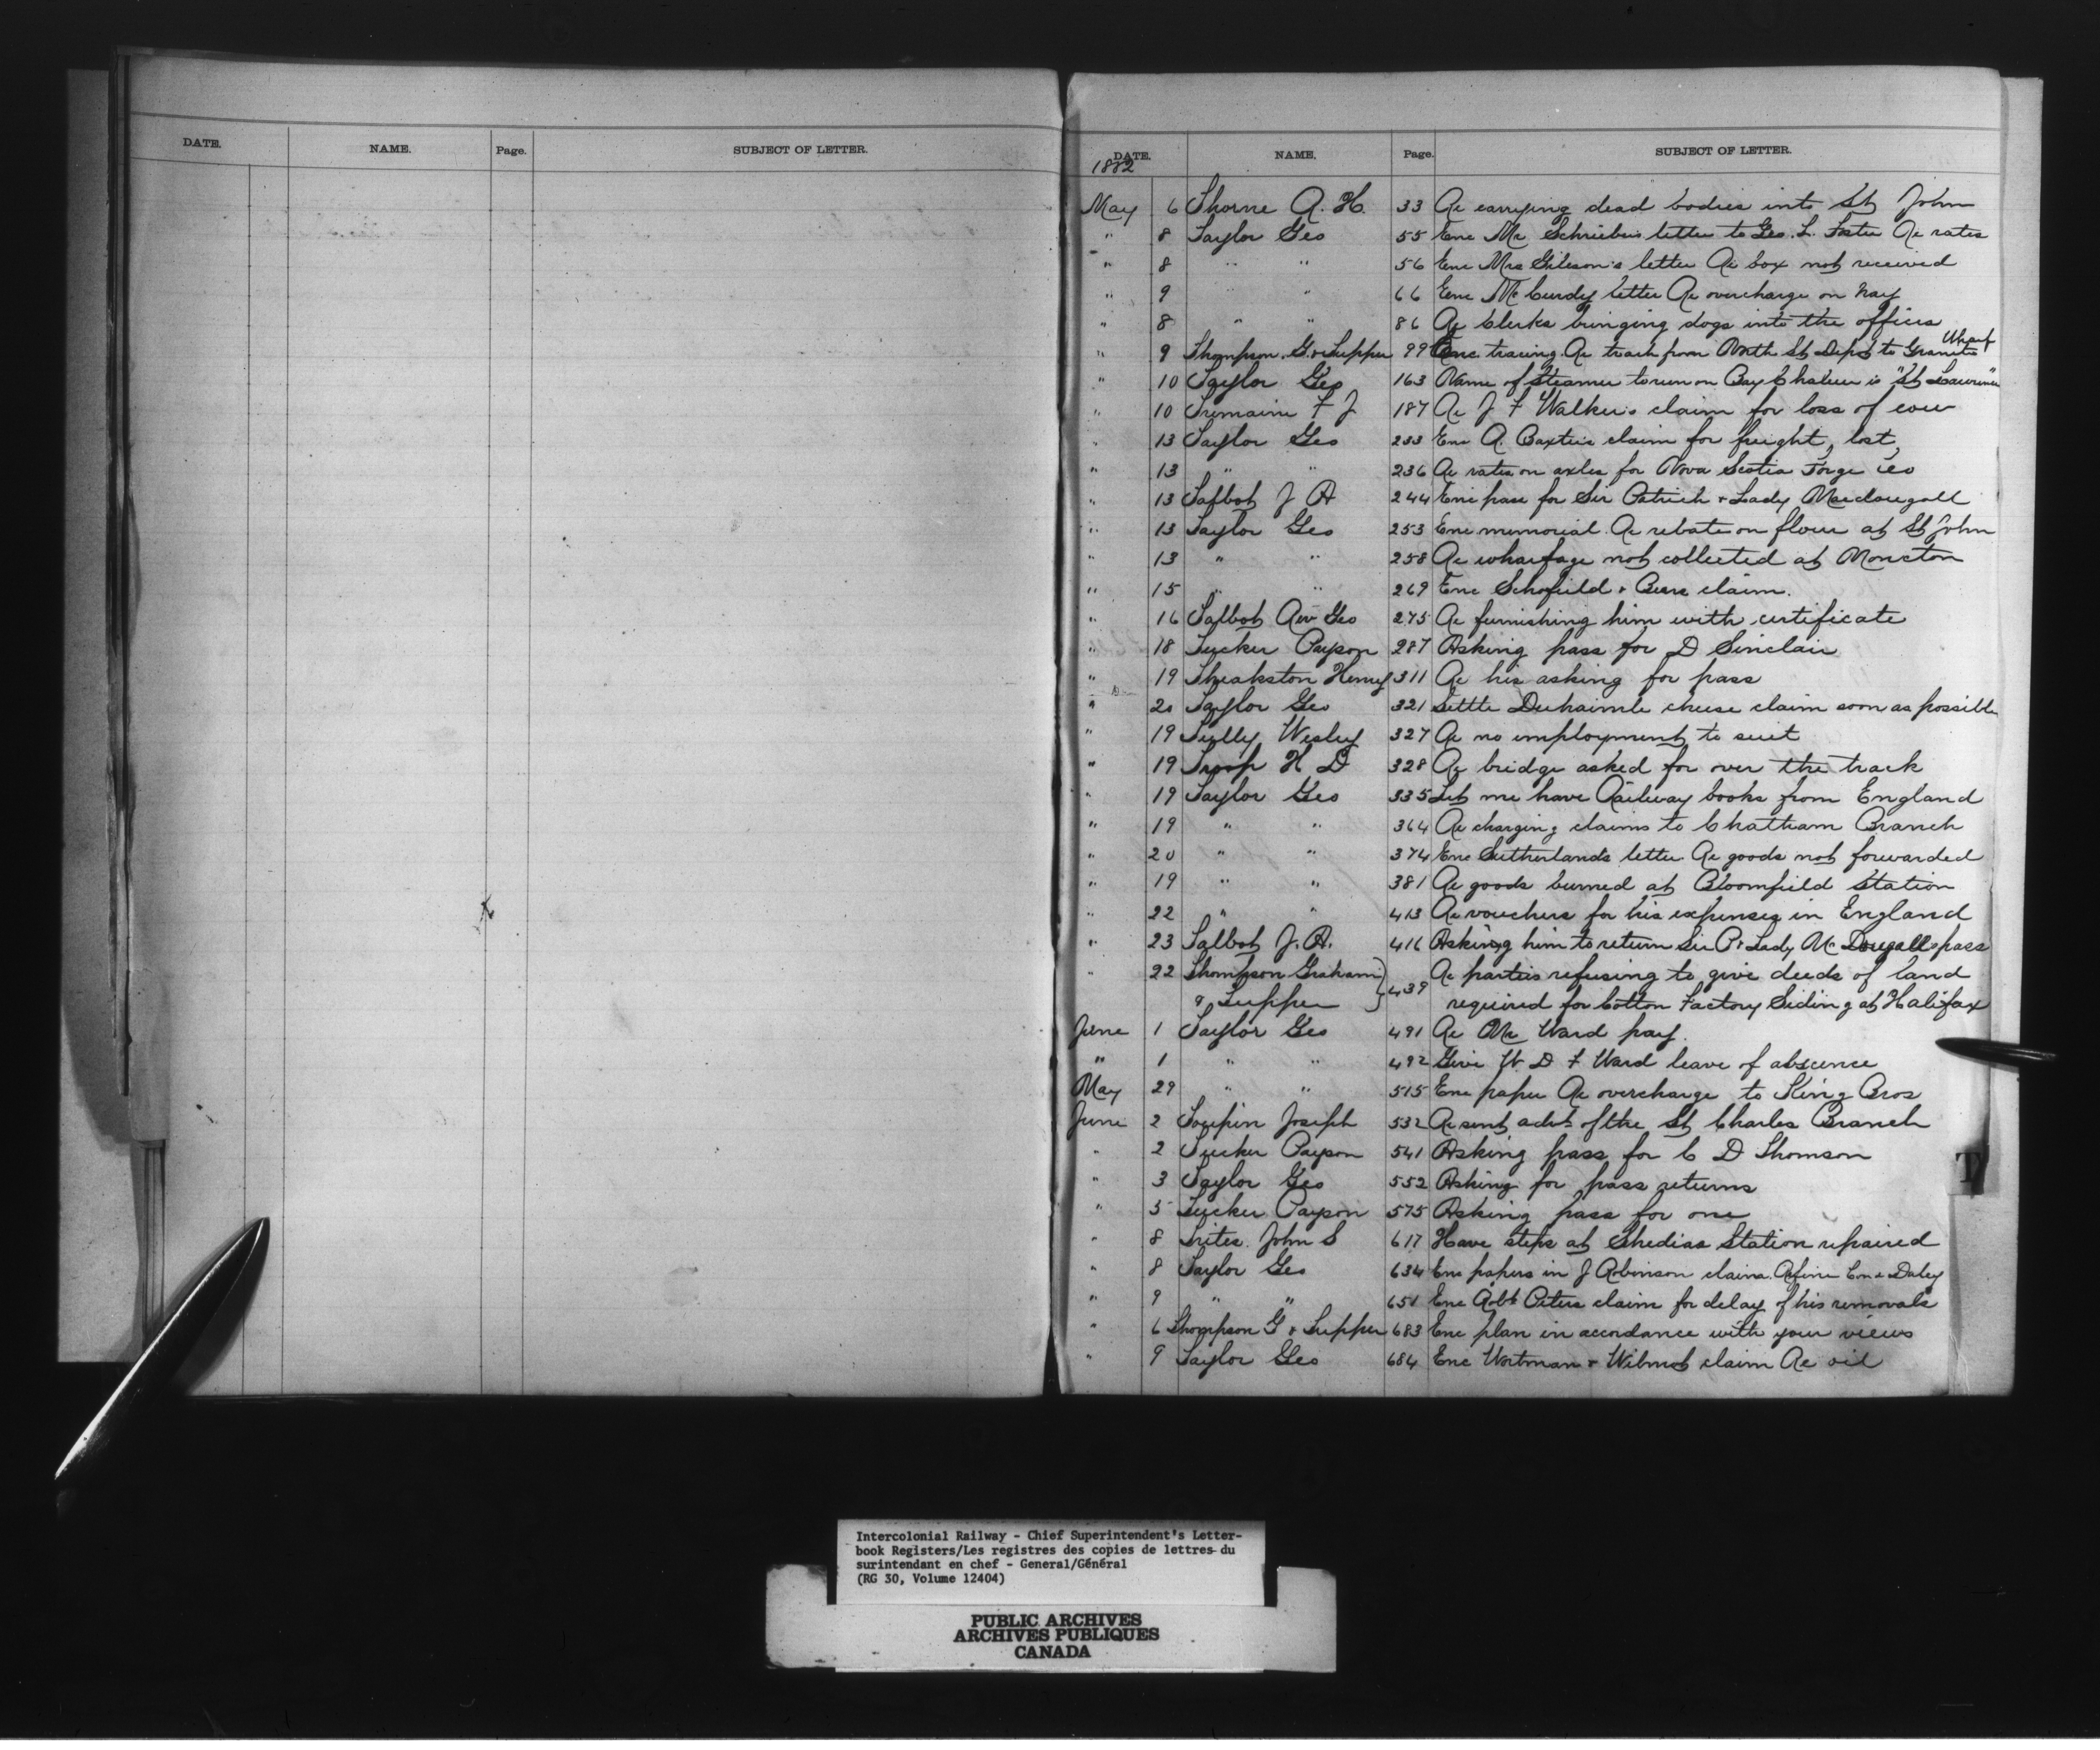 DATE. NAME. Page. SUBJECT OF LETTER.
DATE. NAME. Page. SUBJECT OF LETTER.
1882
May 6 Thorne A. H. 33 Re carrying dead bodies into St John
" 8 Taylor Geo 55 Enc Mr Schrieber's letter to Geo. L. Foster Re rates
" 8 " " 56 Enc Mrs Gibson's letter Re box not received
" 9 " " 66 Enc McCurdy letter Re overcharge on hay
" 8 " " 86 Re Clerks bringing dogs into the offices
" 9 Thompson. G. & Tupper 99 Enc. tracing Re track from North St Depot to Granite Wharf
" 10 Taylor Geo 163 Name of Steamer to run on Bay Chaleur is "St Lawrence"
" 10 Tremaine F J 187 Re J F Walker's claim for loss of cow
" 13 Taylor Geo 233 Enc A. Baxter's claim for freight, lost,
" 13 " " 236 Re rates on axles for Nova Scotia Forge Co
" 13 Talbot J A 244 Enc pass for Sir Patrick & Lady Macdougall
" 13 Taylor Geo 253 Enc memorial Re rebate on flour at St John
" 13 " " 258 Re wharfage not collected at Moncton
" 15 " " 269 Enc Schofield & Beer claim.
" 16 Talbot Rev Geo 275 Re furnishing him with certificate
" 18 Tucker Payson 287 Asking pass for D Sinclair
" 19 Theakston Henry 311 Re his asking for pass
" 20 Taylor Geo 321 Settle Duhaimle cheese claim soon as possible
" 19 Tully Wesley 327 Re no employment to suit
" 19 Troop H D 328 Re bridge asked for over the track
" 19 Taylor Geo 335 Let me have Railway books from England
" 19 " " 364 Re charging claims to Chatham Branch
" 20 " " 374 Enc Sutherlands letter Re goods not forwarded
" 19 " " 381 Re goods burned at Bloomfield Station
" 22 " " 413 Re vouchers for his expenses in England
" 23 Talbot J. A. 416 Asking him to return Sir P & Lady McDougalls pass
" 22 Thompson Graham } 439 Re parties refusing to give deeds of land
& Tupper required for Cotton Factory Siding at Halifax
June 1 Taylor Geo 491 Re Mr Ward pay.
" 1 " " 492 Give W. D F Ward leave of abscence
May 29 " " 515 Enc paper Re overcharge to King Bros
June 2 Toupin Joseph 532 Re sent advt of the St Charles Branch
" 2 Tucker Payson 541 Asking pass for C D Thomson
" 3 Taylor Geo 552 Asking for pass returns
" 5 Tucker Payson 575 Asking pass for one
" 8 Trites John S 617 Have steps at Shediac Station repaired
" 8 Taylor Geo 634 Enc papers in J Robinson claim. Daley
" 9 " " 651 Enc Robt Peters claim for delay of his removals
" 6 Thompson G & Tupper 683 Enc plan in accordance with your views
" 9 Taylor Geo 684 Enc Wortman & Wilmot claim Re oil
T
Intercolonial Railway - Chief Superintendent's Letter-
book Registers/Les registres des copies de lettres du
surintendant en chef - General/Général
(RG 30, Volume 12404)
PUBLIC ARCHIVES
ARCHIVES PUBLIQUES
CANADA